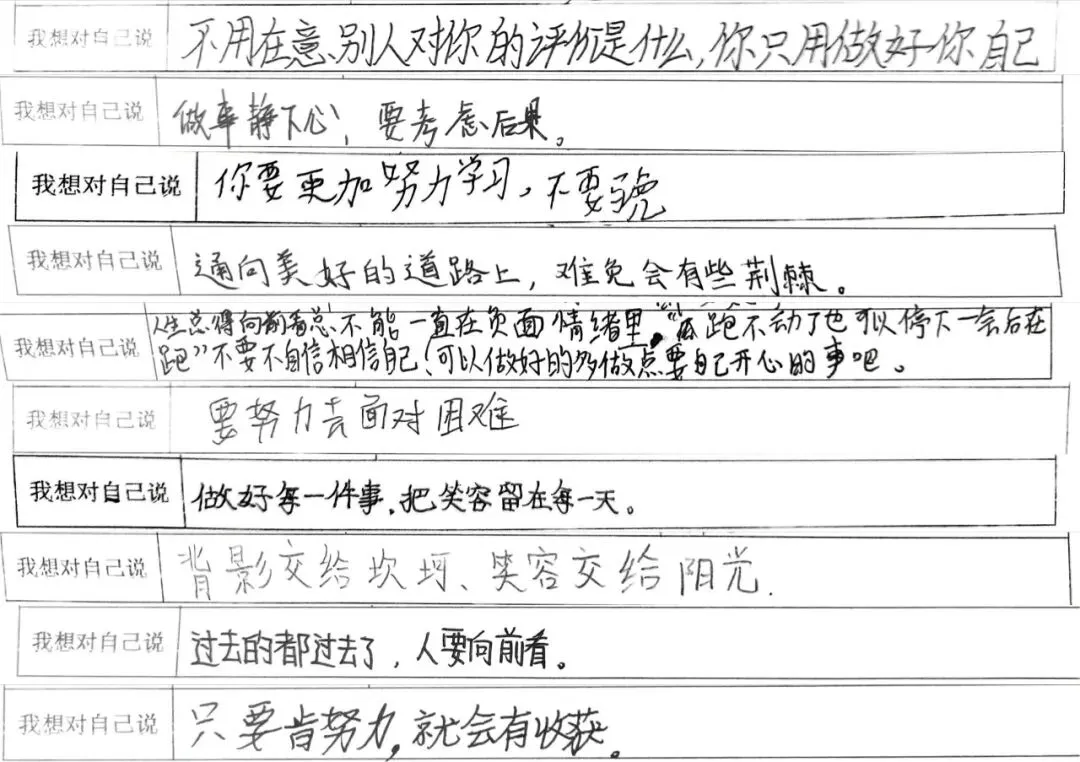 我想对自己说 不用在意别人对你的评价是什么,你只用做好你自己
我想对自己说 做事静下心,要考虑后果。
我想对自己说 你要更加努力学习,不要
我想对自己说 通向美好的道路上,难免会有些荆棘。
人生总得向前看总不能一直在负面情绪里。“跑不动了也可以停下一会后在
跑”不要不自信相信自己!可以做好的多做点要自己开心的事吧。
我想对自己说 要努力去面对困难
我想对自己说 做好每一件事,把笑容留在每一天。
我想对自己说 背影交给坎坷、笑容交给阳光.
我想对自己说 过去的都过去了,人要向前看。
我想对自己说 只要肯努力,就会有收获。